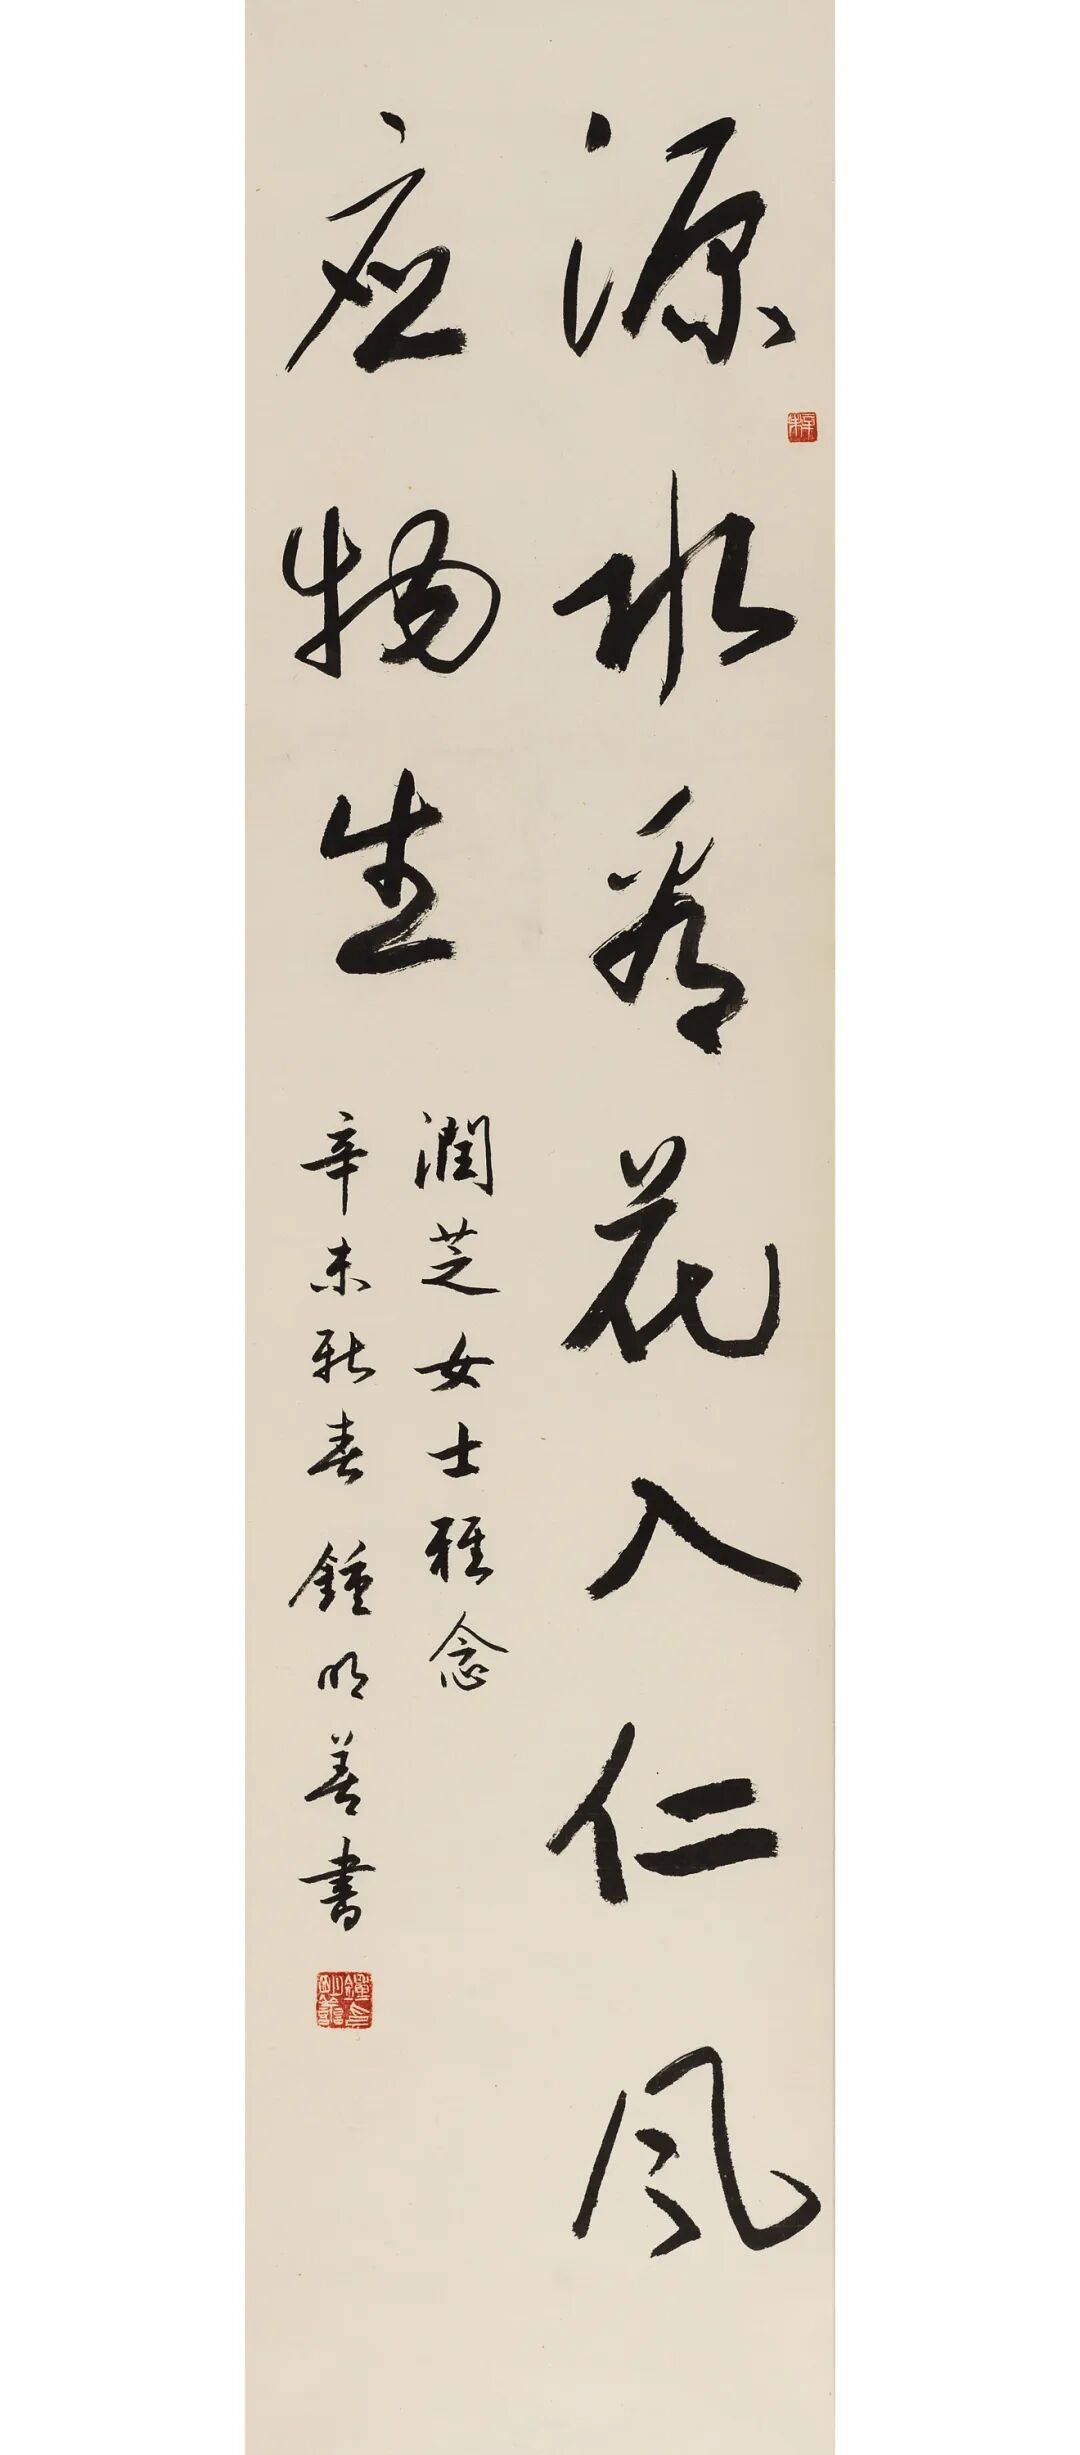 源水看花入仁风
应物生
潤芝女士雅念
辛未新春 鍾明善書